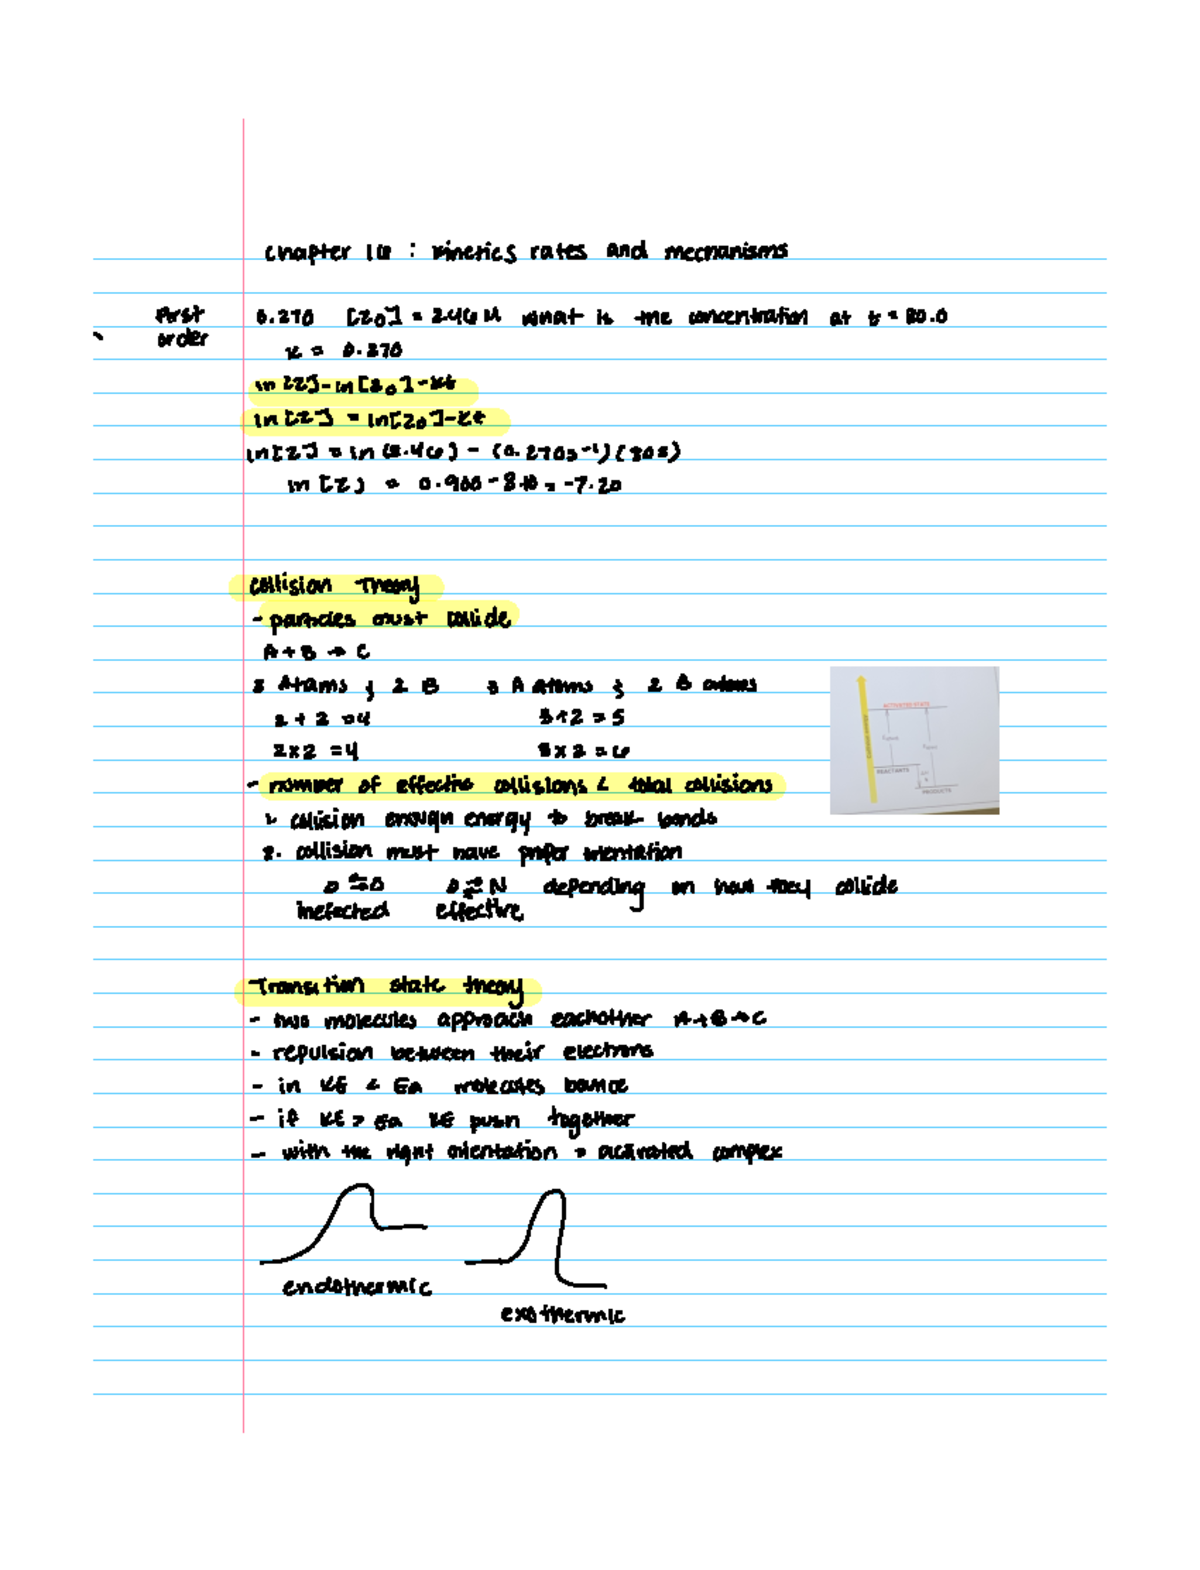 Chapter 16 : kinetics rates and mechanisms
First order
0.270 [Z0] = 2.46 M what is the concentration at t = 30.0
k = 0.270
ln [Z]-ln[Z0]-kt
ln [Z] = ln[Z0]-kt
ln[Z] = ln (2.46) - (0.270s-1)(30s)
ln [Z] = 0.900-8.10 = -7.20
Collision Theory
- particles must collide
A + B → C
2 Atoms & 2 B 3 A atoms & 2 B atoms
2 + 2 = 4 3+2 = 5
2x2 = 4 3x2 = 6
- number of effective collisions < total collisions
1. collision enough energy to break bonds
2. collision must have proper orientation
depending on how they collide
inefected effective
ACTIVATED STATE
REACTANTS
PRODUCTS
Transition state theory
- two molecules approach eachother A+B→C
- repulsion between their electrons
- in KE < Ea molecules bounce
- if KE > Ea KE push together
- with the right orientation = activated complex
endothermic
exothermic